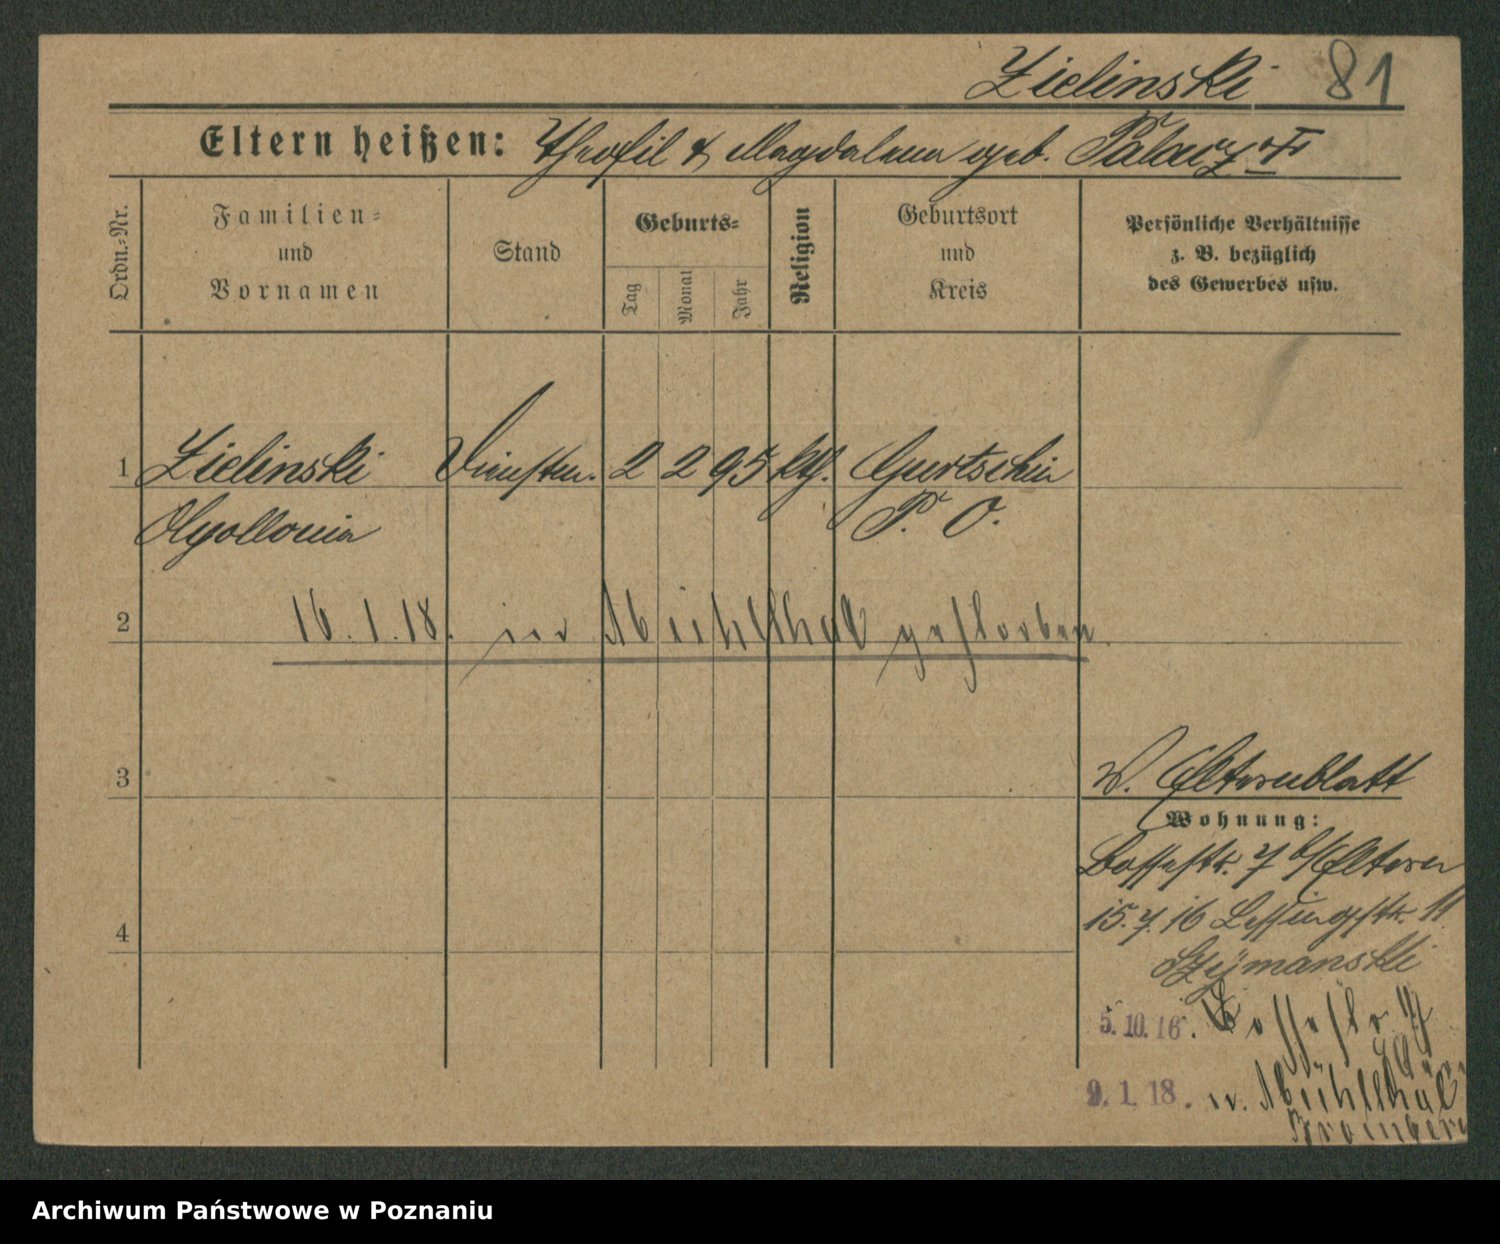 Zielinski 81
Eltern heißen: Theofil & Magdalena geb. Palacz
Ordn.-Nr.
Familien-
und
Vornamen
Stand
Geburts-
Tag
Monat
Jahr
Religion
Geburtsort
und
Kreis
Persönliche Verhältnisse
z. B. bezüglich
des Gewerbes usw.
1 Zielinski 2 2 95 kth. Gurtschin
Apollonia P. O.
2 16.1.18. in Mühlthal gestorben
3
v. Elternblatt
Wohnung:
Bossestr. 7 b/Eltern
4
15.7.16 Lessingstr. 11
Szymanski
5.10.16. Bossestr. 7
9.1.18. n. Mühlthal
Bromberg
Archiwum Państwowe w Poznaniu